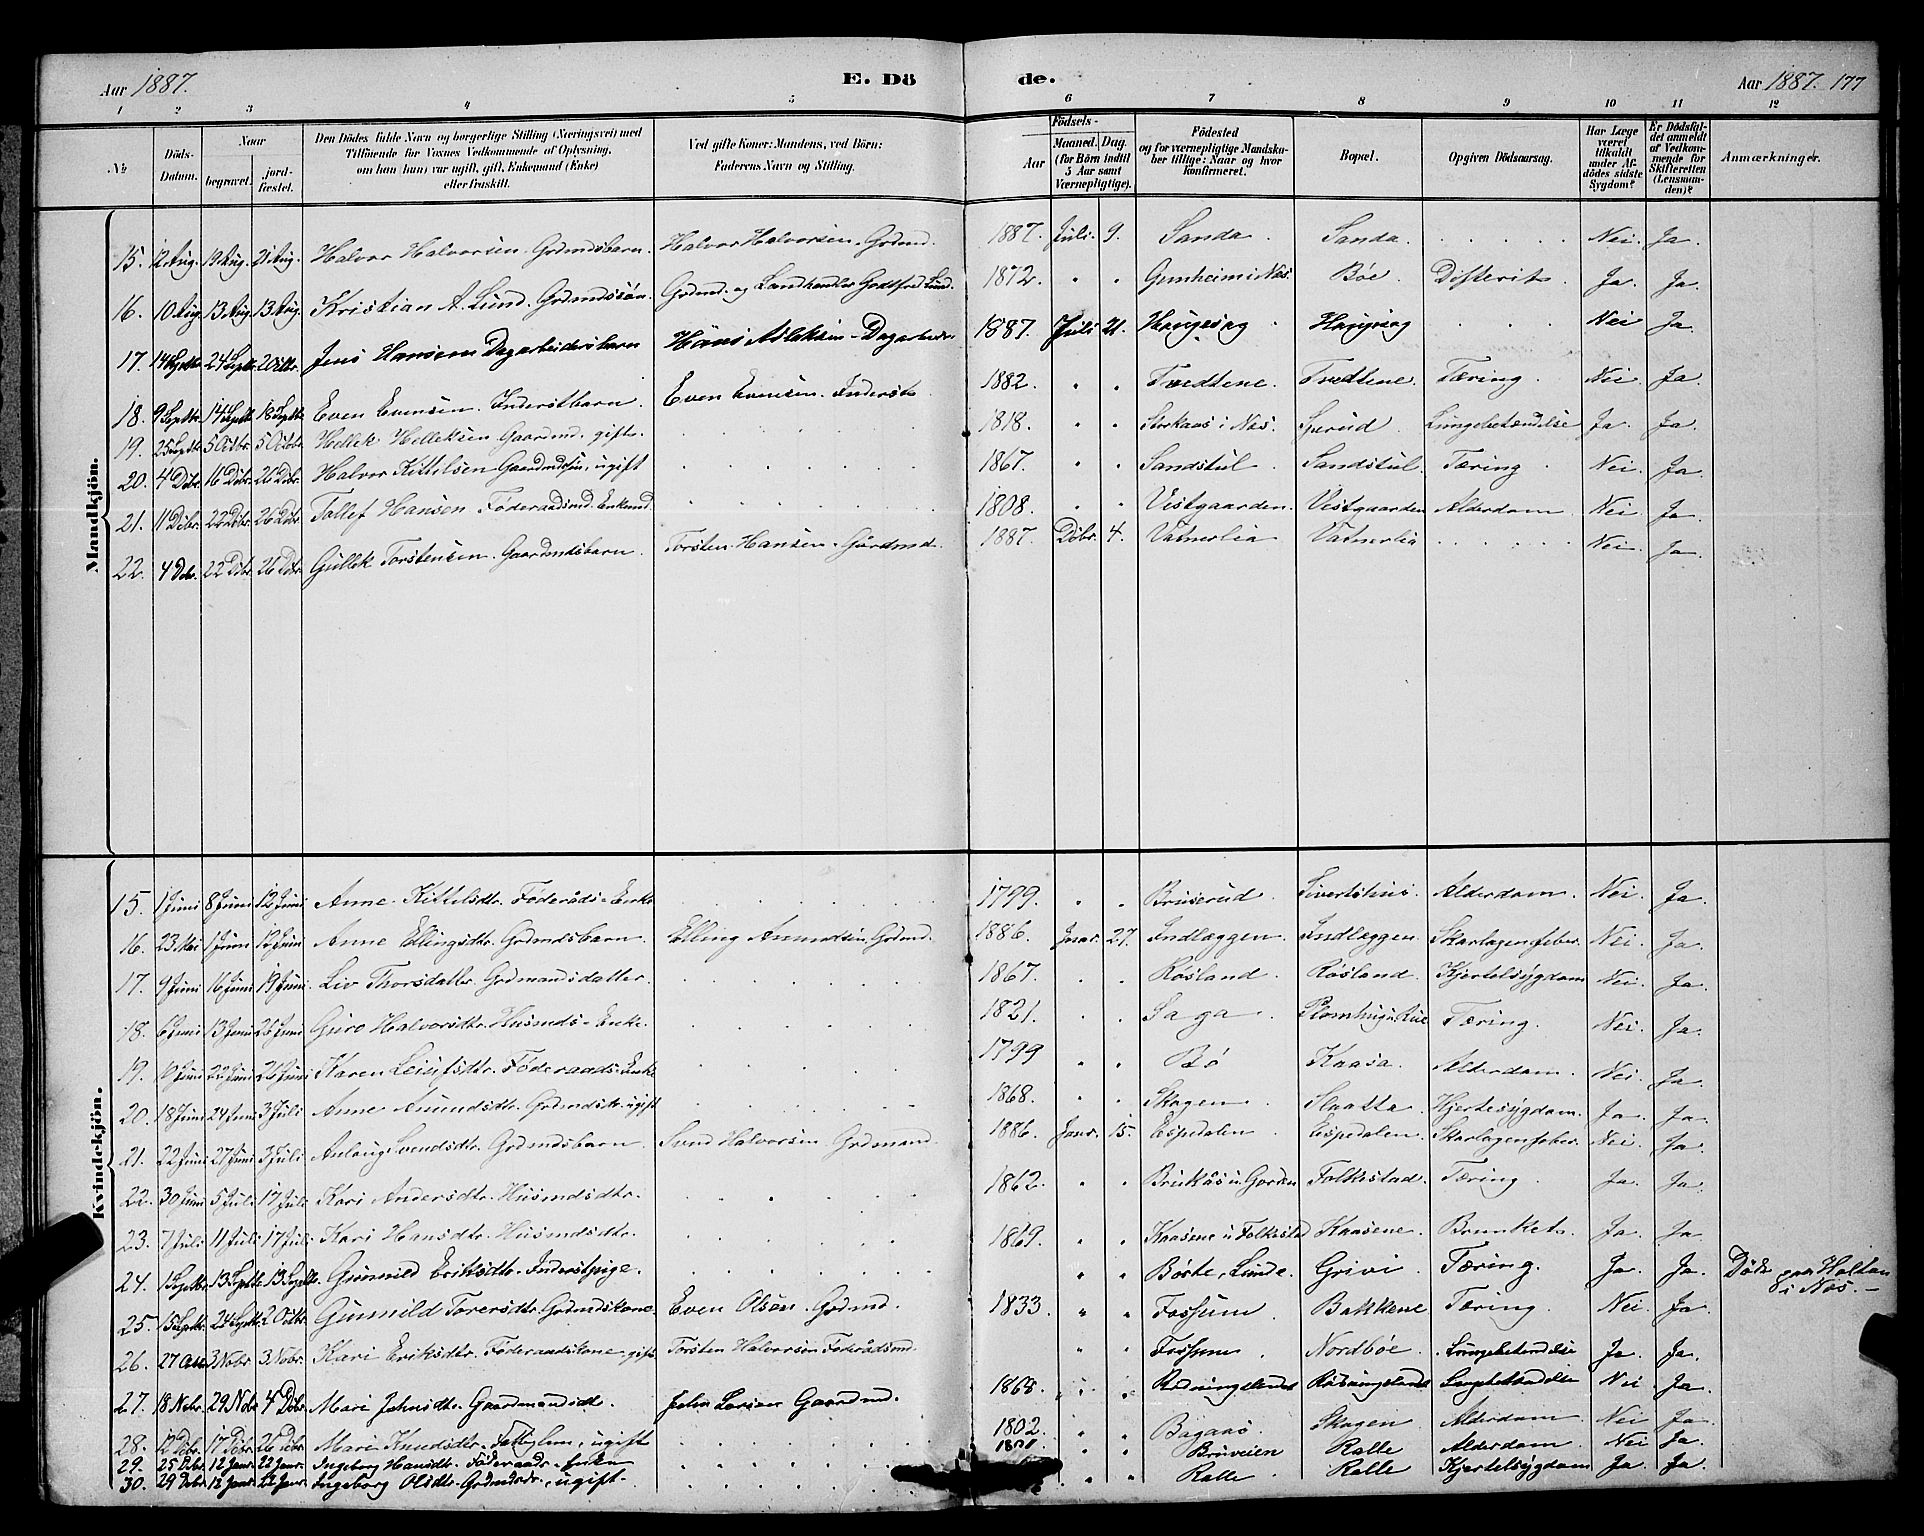 Aar 1887.
E. Dö de.
Aar 1887. 177
1 2 3 4 5 6 7 8 9 10 11 12
№
Döds-Datum.
Naar
begravet.
jordfæstet.
Den Dödes fulde Navn og borgerlige Stilling (Næringsvei) med Tilföiende for Voxnes Vedkommende af Oplysning, om han (hun) var ugift, gift, Enkemand (Enke) eller fraskilt.
Ved gifte Koner: Mandens, ved Börn: Faderens Navn og Stilling.
Födsels-
Aar
Maaned. Dag.
(for Börn indtil 5 Aar samt Værnepligtige).
Födested og for værnepligtige Mandskaber tillige: Naar og hvor konfirmeret.
Bopæl.
Opgiven Dödsaarsag.
Har Læge været tilkaldt under Afdödes sidste Sygdom?
Er Dödsfaldet anmeldt af Vedkommende for Skifteretten (Lensmanden)?
Anmærkninger.
Mandkjön.
15. 12 Aug. 19 Aug. 21 Aug. Halvor Halvorsen. Grdmdsbarn. Halvor Halvorsen. Grdmd. 1887. Juli. 9. Sanda. Sanda. Nei. Ja.
16. 10 Aug. 13 Aug. 13 Aug. Kristian A. Lund. Grdmdssön. Grdmd. og Landhandler Lund. 1872. " " Gunheim i Nes. Böe. Difterit. Ja. Ja.
17. 14 Septbr. 24 Septbr. 2 Octbr. Jens Hansen Dagarbeidersbarn Hans Aslaksen - Dagarbeider 1887. Juli 21. Haugesag. Haugesag Nei Ja.
18. 9 Septbr. 14 Septbr. 18 Septbr. Even Evensen. Inderstbarn. Even Evensen. Inderst. 1882. " " Tvedtene. Tvedtene. Tæring. Nei. Ja.
19. 25 Septbr. 5 Octbr. 5 Octbr. Hellek Helleksen Gaardmd. gift. 1818. " " Storkaas i Nes. Sperud. Lungebetændelse Ja. Ja.
20. 4 Dcbr. 16 Dcbr. 26 Dcbr. Halvor Kittelsen Gaardmdssön, ugift 1867. " " Sandstul. Sandstul. Tæring. Nei. Ja.
21. 11 Dcbr. 22 Dcbr. 26 Dcbr. Tollef Hansen Föderaadsmd. Enkemd. 1808. " " Vestgaarden. Vestgaarden Alderdom. Nei. Ja.
22. 4 Dcbr. 22 Dcbr. 26 Dcbr. Gullek Torstensen. Gaardmdsbarn. Torsten Hansen. Gårdmd. 1887. Dcbr. 4. Vatnerlia Vatnerlia Nei. Ja.
Kvindekjön.
15. 1 Juni 8 Juni 12 Juni Anne Kittelsdtr. Föderåds-Enke 1799. " " Bruserud. Sivertshus. Alderdom. Nei. Ja.
16. 23 Mai 1 Juni 12 Juni Anne Ellingsdtr. Grdmdsbarn. Elling Amundsen. Grdmd. 1886. Januar. 27. Indlæggen. Indlæggen. Skarlagensfeber. Nei. Ja.
17. 9 Juni 16 Juni 19 Juni. Liv Thorsdatter. Grdmandsdatter. 1867. " " Rösland. Rösland. Kjertelsygdom Nei. Ja.
18. 6 Juni 13 Juni 26 Juni Guro Halvorsdtr. Husmds-Enke. 1821. " " Saga. Tæring. Nei. Ja.
19. 10 Juni 22 Juni 26 Juni Karen Leiufsdtr. Föderaads-Enke 1799 " " Bö Kaasa. Alderdom. Nei. Ja.
20. 18 Juni 24 Juni 3 Juli Anne Amundsdtr. Grdmdsdtr. ugift 1868. " " Skogen. Slaatta. Kjertelsygdom. Ja. Ja.
21. 22 Juni 27 Juni 3 Juli Aslaug Svendsdtr. Grdmdsbarn. Svend Halvorsen. Grdmand. 1886. Janr. 15. Espedalen. Espedalen. Skarlagensfeber. Nei. Ja.
22. 30 Juni 5 Juli 17 Juli Kari Andersdtr. Husmdsdtr. 1862. " " Folkestad. Tæring. Ja. Ja.
23. 7 Juli 11 Juli 17 Juli. Kari Hansdtr. Husmdsdtr. 1869. " " Kaasene u. Folkestad Kaasene. Ja. Ja
24. 1 Septbr. 13 Septbr. 13 Septbr. Gunnild Eriksdtr. Inderstpige. " " Börte, Lunde. Grivi. Tæring. Ja. Ja. Död paa Haltan i Nes. -
25. 15 Septbr. 24 Septbr. 2 Octbr. Gunnild Toresdtr. Grdmdskone Even Olsen. Grdmd. 1833. " " Fossum. Bakkene. Tæring. Nei. Ja.
26. 27 Oct. 3 Nobr. 3 Nobr. Kari Eriksdtr. Föderaadskone gift. Torsten Halvorsen. Föderådsmd. " " Fossum. Nordböe. Lungebetændelse Ja. Ja.
27. 18 Nobr. 29 Nobr. 4 Dcbr. Mari Johnsdtr. Gaardmandsdtr. John Larsen Gaardmd. 1868. " " Nei Ja.
28. 12 Dcbr. 17 Dcbr. 26 Dcbr. Mari Knudsdtr. Fattiglem, ugift 1802. " " Bagaas. Skogen. Alderdom. Nei Ja.
29. 25 Dcbr. 12 Janr. 22 Janr. Ingeborg Hansdtr. Föderaads-Enken " " Bruveien Ralle. Alderdom. Nei Ja.
30. 29 Dcbr. 12 Janr. 22 Janr. Ingeborg Olsdtr. Grdmdsdtr., ugift. " " Ralle. Ralle Kjertelsygdom Ja. Ja.